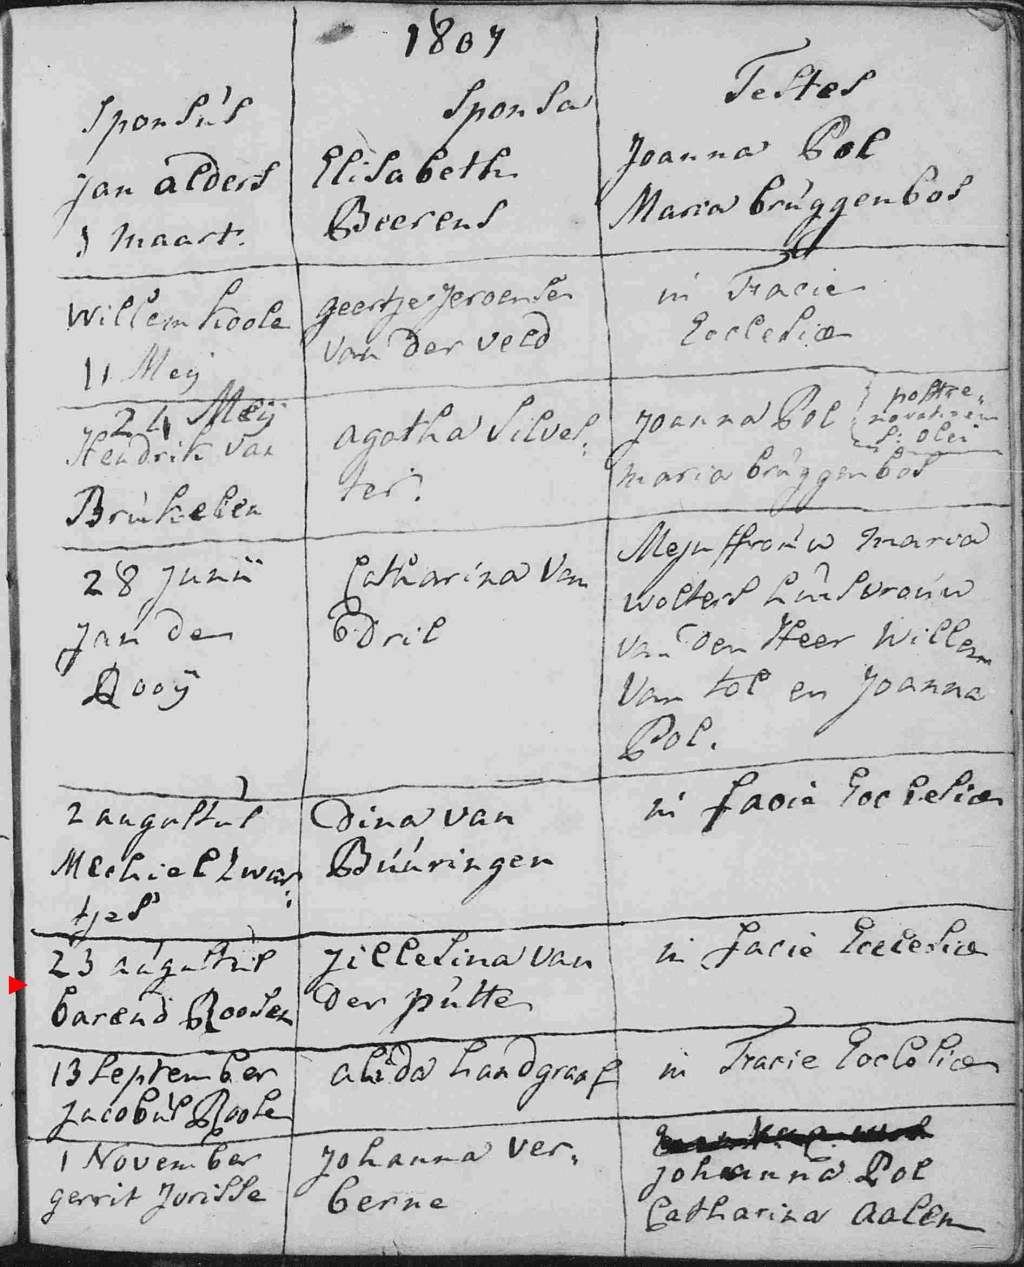 1807
Sponsus
Sponsa
Testes
Jan alders
1 maart.
Elisabeth
Beerens
Joanna Pol
Maria brúggenbos
Willem Koole
11 Meij
geertje Jeroense
van der veld
in Facie
Ecclesiæ
24 Meij
Hendrik van
Brúkelen
agatha Silves:
ter.
Joanna Pol
maria brúggenbos
post re-
novationem
S: olei
28 Junii
Jan de
Rooÿ
Catharina van
Dril
Mejuffroúw maria
wolters húisvroúw
van den Heer Willem
van tol en Joanna
Pol.
2 augustus
Mechiel Zwar:
tjes
Dina van
Búúringen
in facie Ecclesiæ
23 aúgustus
barend Roosen
Jillesina van
der pútte
in facie Ecclesiæ
13 September
Jacobús Roose
alida Landgraaf
in Facie Ecclesiæ
1 November
gerrit Jorisse
Johanna ver:
berne
Johanna Pol
Catharina aalen